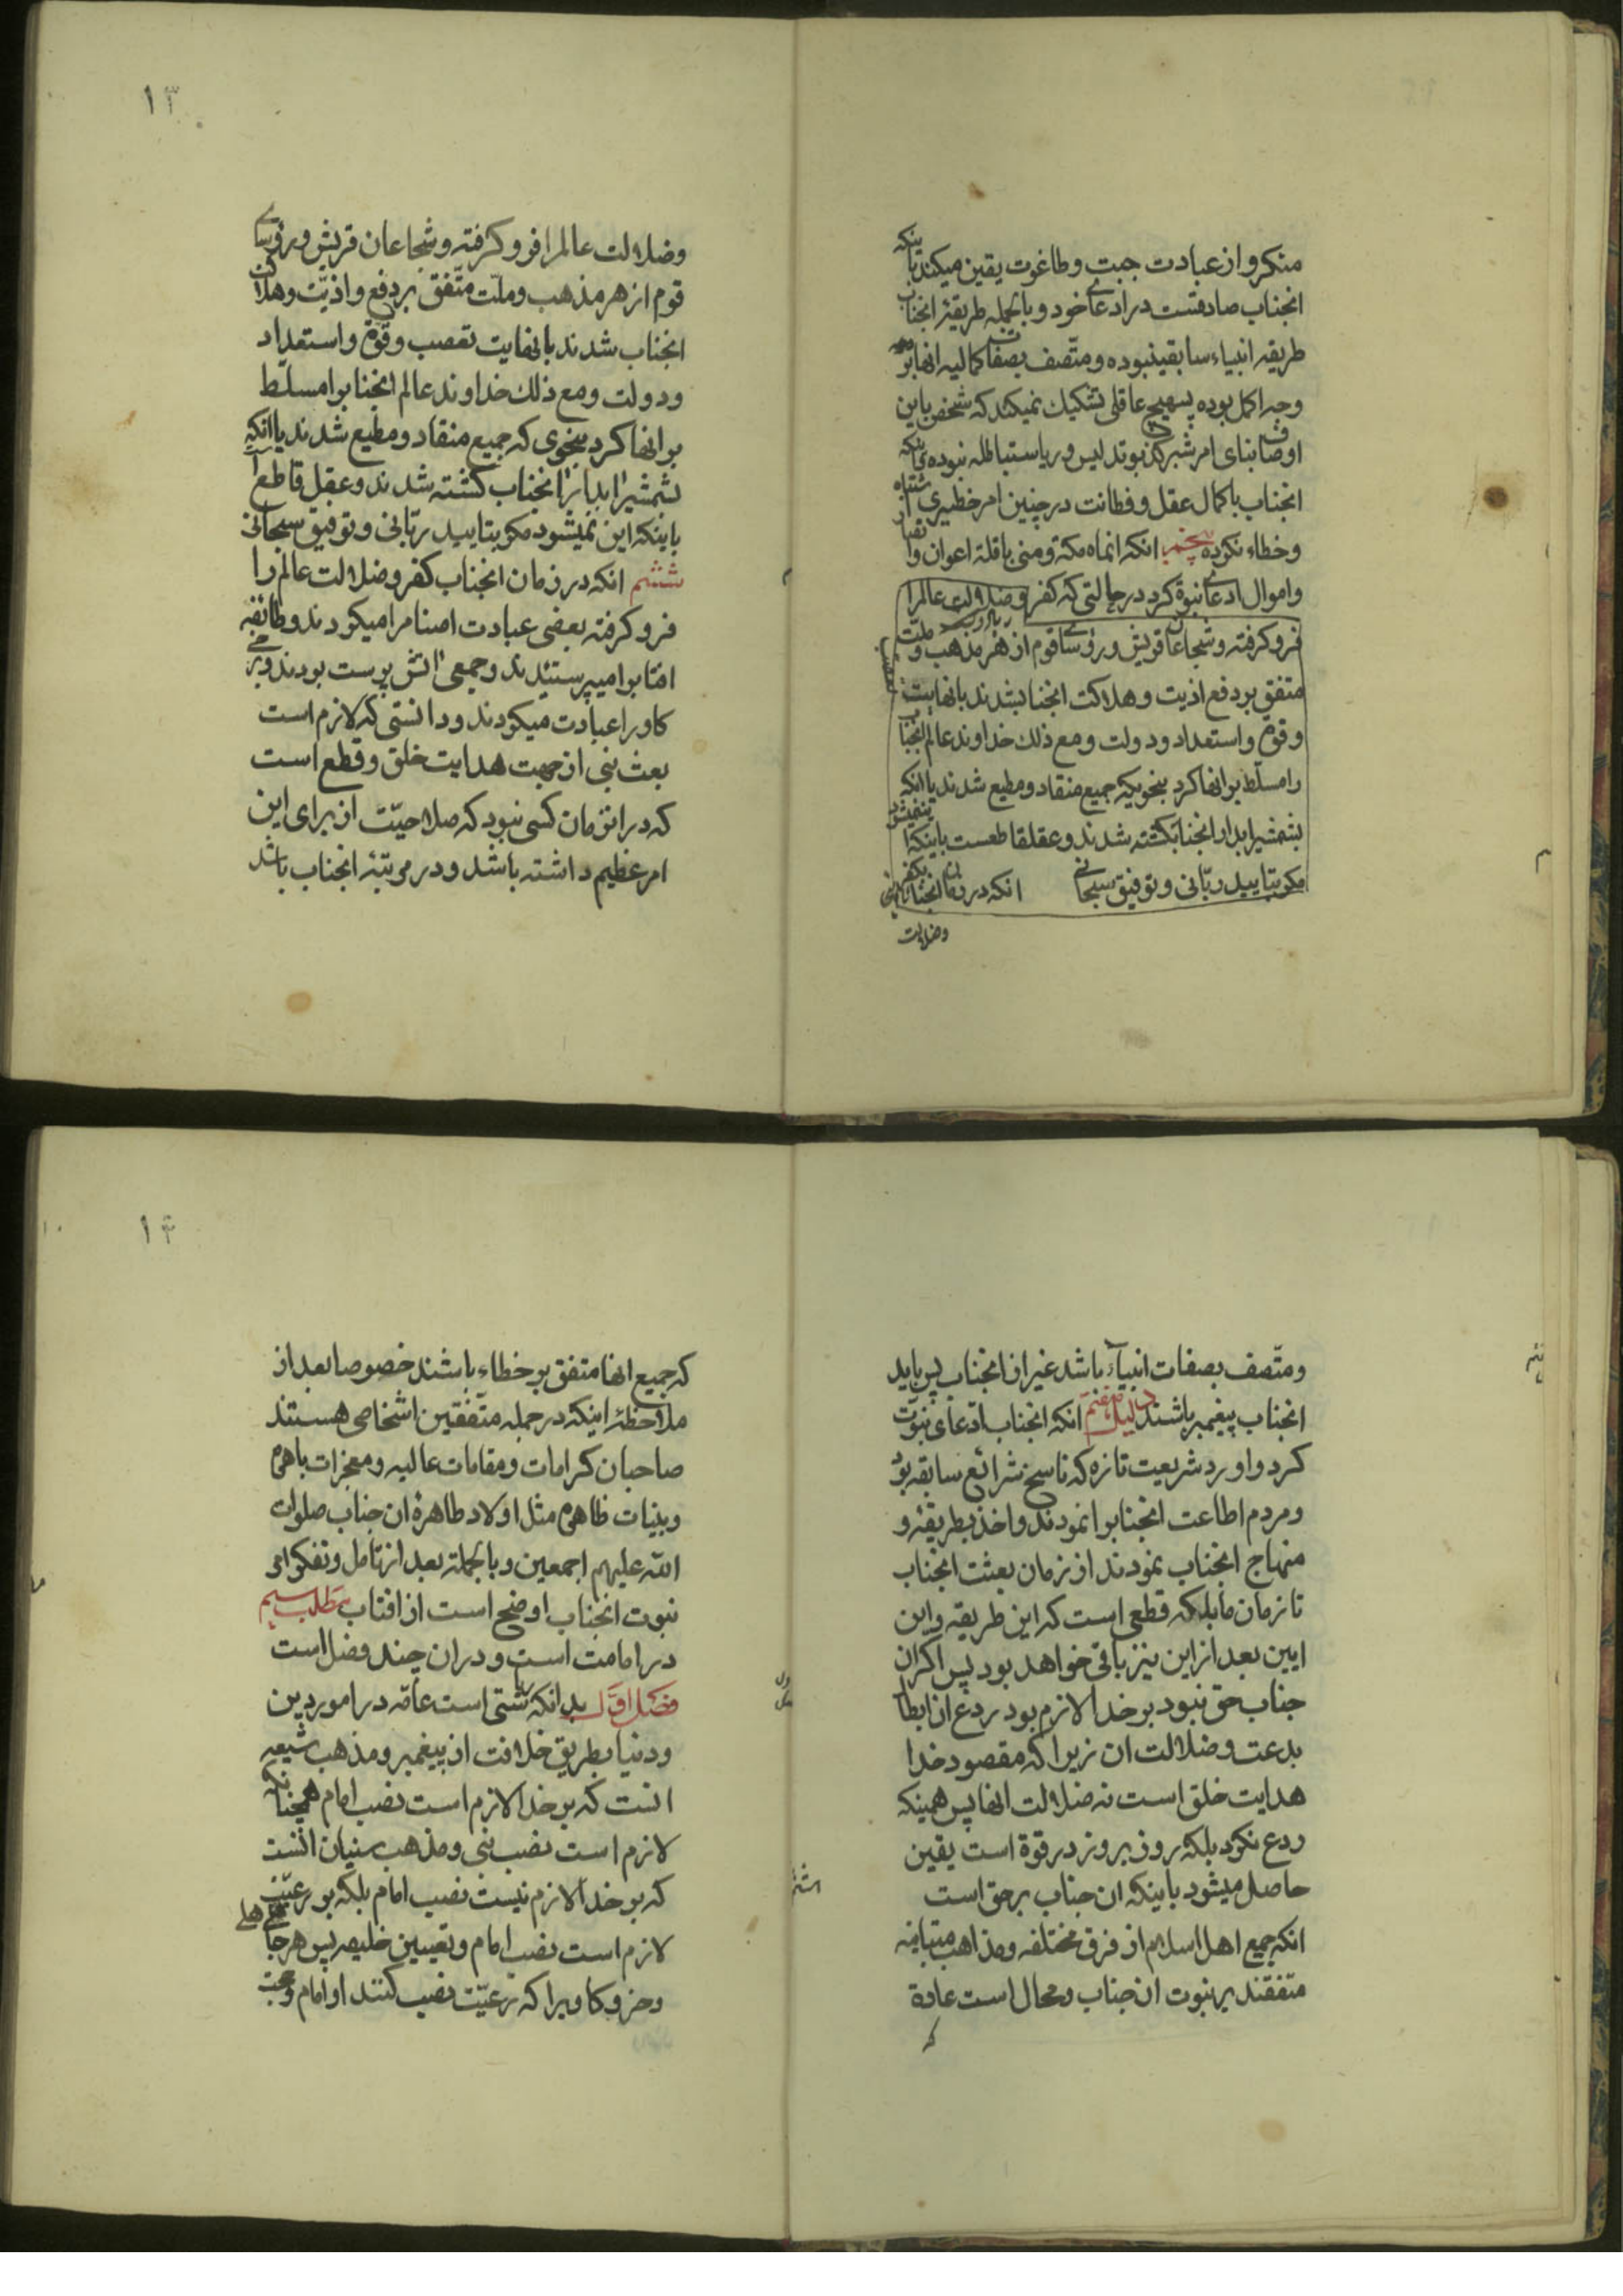 منکر و از عبادت جبت و طاغوت یقین میکند باینکه
انجناب صادقست در ادعای خود و بالجمله طریقهٔ انجناب
طریقه انبیاء سابقین بوده و متّصف بصفات کمالیه انها بر
وجه اکمل بوده پس هیچ عاقلی تشکیک نمیکند که شخص باین
اوصاف بنای امرش بر کذب و تدلیس و ریاست باطله نبوده
انجناب با کمال عقل و فطانت در چنین امر خطیری اشتباه
و خطاء نکرده پنجم انکه انماه مکة و منی با قلة اعوان و انصار
و اموال ادعای نبوة کرد در حالتی که کفر و ضلالت عالمرا
فرو کرفته و شجاعان قریش و رؤسای قوم از هر مذهب و ملّت
متفق بر دفع اذیت و هلاکت انجناب شدند با نهایت
و قوة و استعداد و دولت و مع ذلک خداوند عالم انجناب
را مسلّط بر انها کرد بنحویکه جمیع منقاد و مطیع شدند یا انکه
بشمشیر ابدار انجناب کشته شدند و عقل قاطعست باینکه این نمیشود
مکر بتایید ربّانی و توفیق سبحانی انکه در زمان انجناب کفر
وضلالت
۱۳
و ضلالت عالمرا فرو کرفته و شجاعان قریش و رؤسای
قوم از هر مذهب و ملّت متّفق بر دفع و اذیّت و هلاکت
انجناب شدند با نهایت تعصب و قوة و استعداد
و دولت و مع ذلک خداوند عالم انجنابرا مسلّط
بر انها کرد بنحوی که جمیع منقاد و مطیع شدند یا انکه
بشمشیر ابدار انجناب کشته شدند و عقل قاطع است
باینکه این نمیشود مکر بتایید ربّانی و توفیق سبحانی
ششم انکه در زمان انجناب کفر و ضلالت عالم را
فرو کرفته بعضی عبادت اصنام را میکردند و طائفه
افتابرا میپرستیدند و جمعی اتش پرست بودند و برخی
کاو را عبادت میکردند و دانستی که لازم است
بعث نبی از جهت هدایت خلق و قطع است
که در انزمان کسی نبود که صلاحیّت از برای این
امر عظیم داشته باشد و در مرتبهٔ انجناب باشد
و متّصف بصفات انبیاء باشد غیر از انجناب پس باید
انجناب پیغمبر باشند دلیل هفتم انکه انجناب ادّعای نبوّت
کرد و اورد شریعت تازه که ناسخ شرائع سابقه بود
و مردم اطاعت انجنابرا نمودند و اخذ بطریقهٔ و
منهاج انجناب نمودند از زمان بعثت انجناب
تا زمان ما بلکه قطعی است که این طریقه و این
ایین بعد از این نیز باقی خواهد بود پس اکر ان
جناب حق نبود بر خدا لازم بود ردع ان ابطال
بدعت و ضلالت ان زیرا که مقصود خدا
هدایت خلق است نه ضلالت انها پس همینکه
ردع نکرد بلکه روز بروز در قوة است یقین
حاصل میشود باینکه ان جناب بر حق است
انکه جمیع اهل اسلام از فرق مختلفه و مذاهب متباینه
متّفقند بر نبوت ان جناب و محال است عادة
که
۱۴
که جمیع انها متفق بر خطاء باشند خصوصا بعد از
ملاحظهٔ اینکه در جمله متّفقین اشخاصی هستند
صاحبان کرامات و مقامات عالیه و معجزات باهره
و بنیات ظاهره مثل اولاد طاهرهٔ ان جناب صلوات
الله علیهم اجمعین و بالجملة بعد از تامل و تفکر امر
نبوت انجناب اوضح است از افتاب مطلب سیم
در امامت است و در ان چند فصل است
فصل اوّل بدانکه ریاستی است عامّه در امور دین
و دنیا بطریق خلافت از پیغمبر و مذهب شیعه
انست که بر خدا لازم است نصب امام همچنانکه
لازم است نصب نبی و مذهب سنیان انست
که بر خدا لازم نیست نصب امام بلکه بر رعیّت
لازم است نصب امام و تعیین خلیفه پس هر جاهلی
و خر و کاویرا که رعیّت نصب کنند او امام